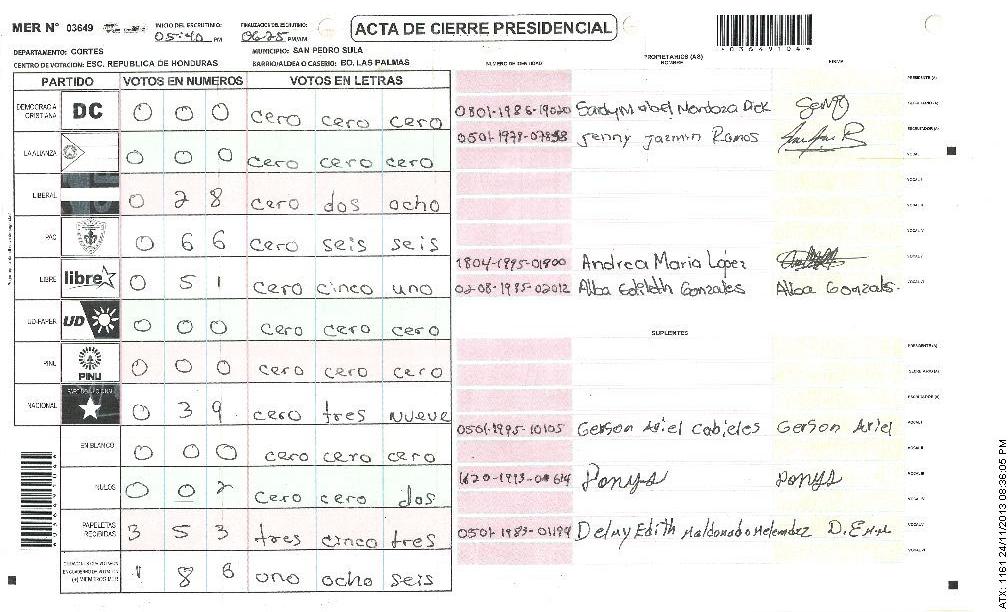 MER N° 03649
INICIO DEL ESCRUTINIO: 05:40 PM
FINALIZACION DEL ESCRUTINIO: 06:25 PM/AM
ACTA DE CIERRE PRESIDENCIAL
*036491044*
DEPARTAMENTO: CORTES
MUNICIPIO: SAN PEDRO SULA
CENTRO DE VOTACION: ESC. REPUBLICA DE HONDURAS
BARRIO/ALDEA O CASERIO: BO. LAS PALMAS
PARTIDO VOTOS EN NUMEROS VOTOS EN LETRAS
DEMOCRACIA CRISTIANA DC 0 0 0 cero cero cero
LA ALIANZA 0 0 0 cero cero cero
LIBERAL 0 2 8 cero dos ocho
PAC 0 6 6 cero seis seis
LIBRE libre 0 5 1 cero cinco uno
UD-FAPER UD 0 0 0 cero cero cero
PINU PINU 0 0 0 cero cero cero
NACIONAL 0 3 9 cero tres nueve
EN BLANCO 0 0 0 cero cero cero
NULOS 0 0 2 cero cero dos
PAPELETAS RECIBIDAS 3 5 3 tres cinco tres
1 8 6 uno ocho seis
NUMERO DE IDENTIDAD
PROPIETARIOS (AS)
NOMBRE
FIRMA
PRESIDENTE (A)
0801-1986-19020 Mendoza Dick
SECRETARIO (A)
0501-1978- Jenny Jazmin Ramos
ESCRUTADOR (A)
VOCAL I
1804-1995-01800 Andrea Maria López
02-08-1985-02012 Alba Edileth Gonzales Alba Gonzales.
SUPLENTES
PRESIDENTE (A)
SECRETARIO (A)
ESCRUTADOR (A)
0501-1995-10105 Gerson Ariel Cabieles Gerson Ariel
VOCAL I
VOCAL II
1620-1993- Ponys Ponys
VOCAL III
VOCAL IV
0501-1983-01199 Delmy Edith Maldonado Melendez D.E.M.M
VOCAL V
VOCAL VI
ATX: 1161 24/11/2013 08:36:05 PM